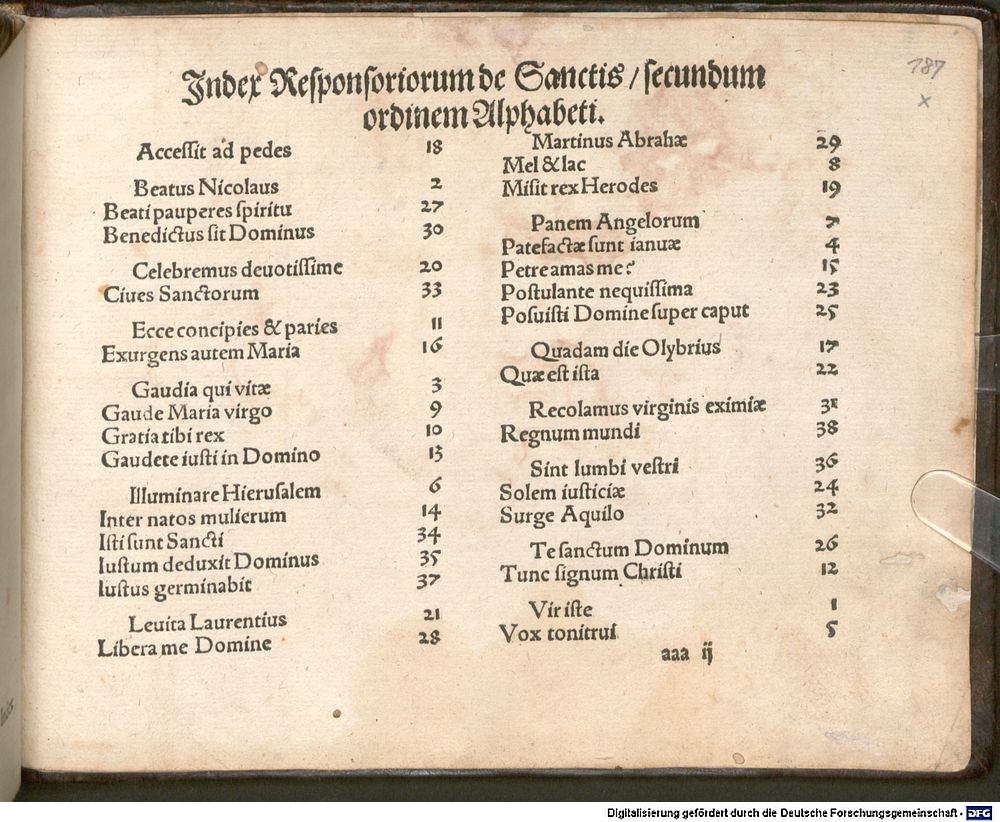 Index Responsoriorum de Sanctis / secundum
ordinem Alphabeti.
187
x
Accessit ad pedes 18
Beatus Nicolaus 2
Beati pauperes spiritu 27
Benedictus sit Dominus 30
Celebremus deuotissime 20
Ciues Sanctorum 33
Ecce concipies & paries 11
Exurgens autem Maria 16
Gaudia qui vitæ 3
Gaude Maria virgo 9
Gratia tibi rex 10
Gaudete iusti in Domino 13
Illuminare Hierusalem 6
Inter natos mulierum 14
Isti sunt Sancti 34
Iustum deduxit Dominus 35
Iustus germinabit 37
Leuita Laurentius 21
Libera me Domine 28
Martinus Abrahæ 29
Mel & lac 8
Misit rex Herodes 19
Panem Angelorum 7
Patefactæ sunt ianuæ 4
Petre amas me? 15
Postulante nequissima 23
Posuisti Domine super caput 25
Quadam die Olybrius 17
Quæ est ista 22
Recolamus virginis eximiæ 31
Regnum mundi 38
Sint lumbi vestri 36
Solem iusticiæ 24
Surge Aquilo 32
Te sanctum Dominum 26
Tunc signum Christi 12
Vir iste 1
Vox tonitrui 5
aaa ij
Digitalisierung gefördert durch die Deutsche Forschungsgemeinschaft - DFG